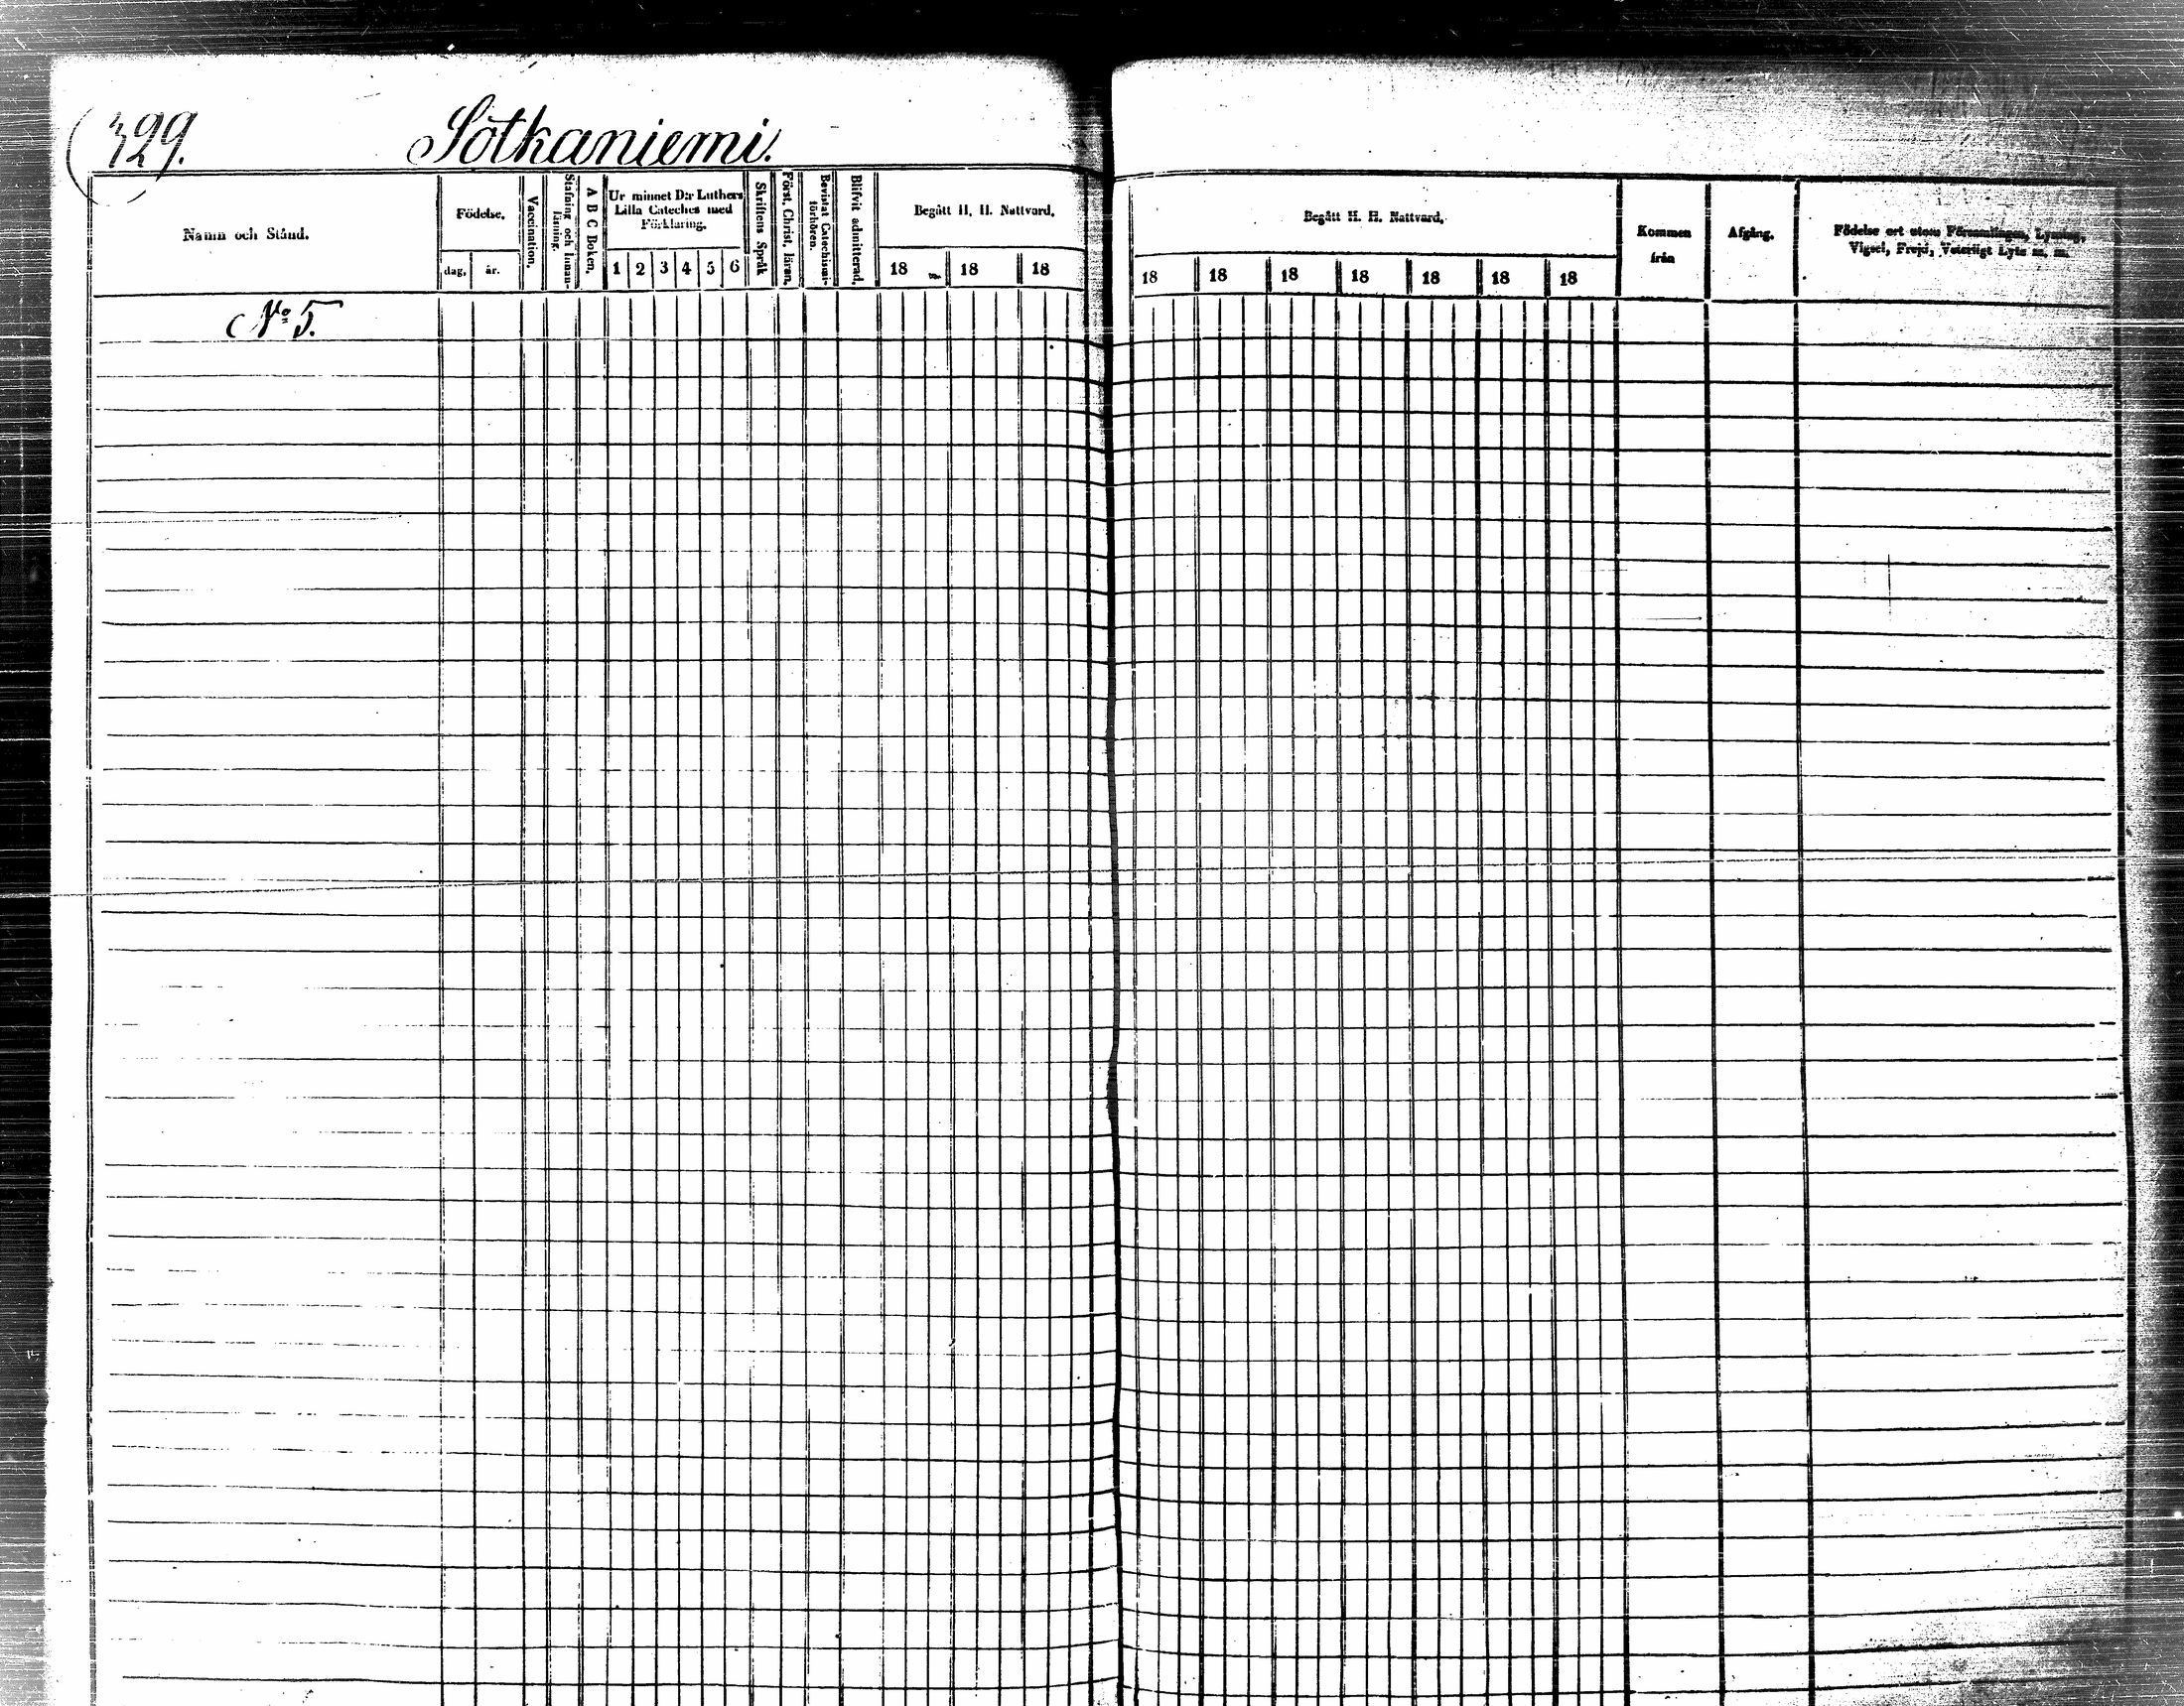 329.
Sotkaniemi.
Namn och Stånd.
Födelse.
dag.
år.
Vaccination.
Stafning och Innanläsning.
A B C Boken.
Ur minnet D:r Luthers
Lilla Cateches med
Förklaring.
1 2 3 4 5 6
Skriftens Språk
Först. Christ. läran.
Bevistat Catechismi-
förhören.
Blifvit admitterad.
Begått H. H. Nattvard.
18 18 18
Begått H. H. Nattvard.
18 18 18 18 18 18 18
Kommen
från
Afgång.
Födelse ort utom Församlingen, Lysning,
Vigsel, Frejd, Veterligt Lyte m. m.
No 5.